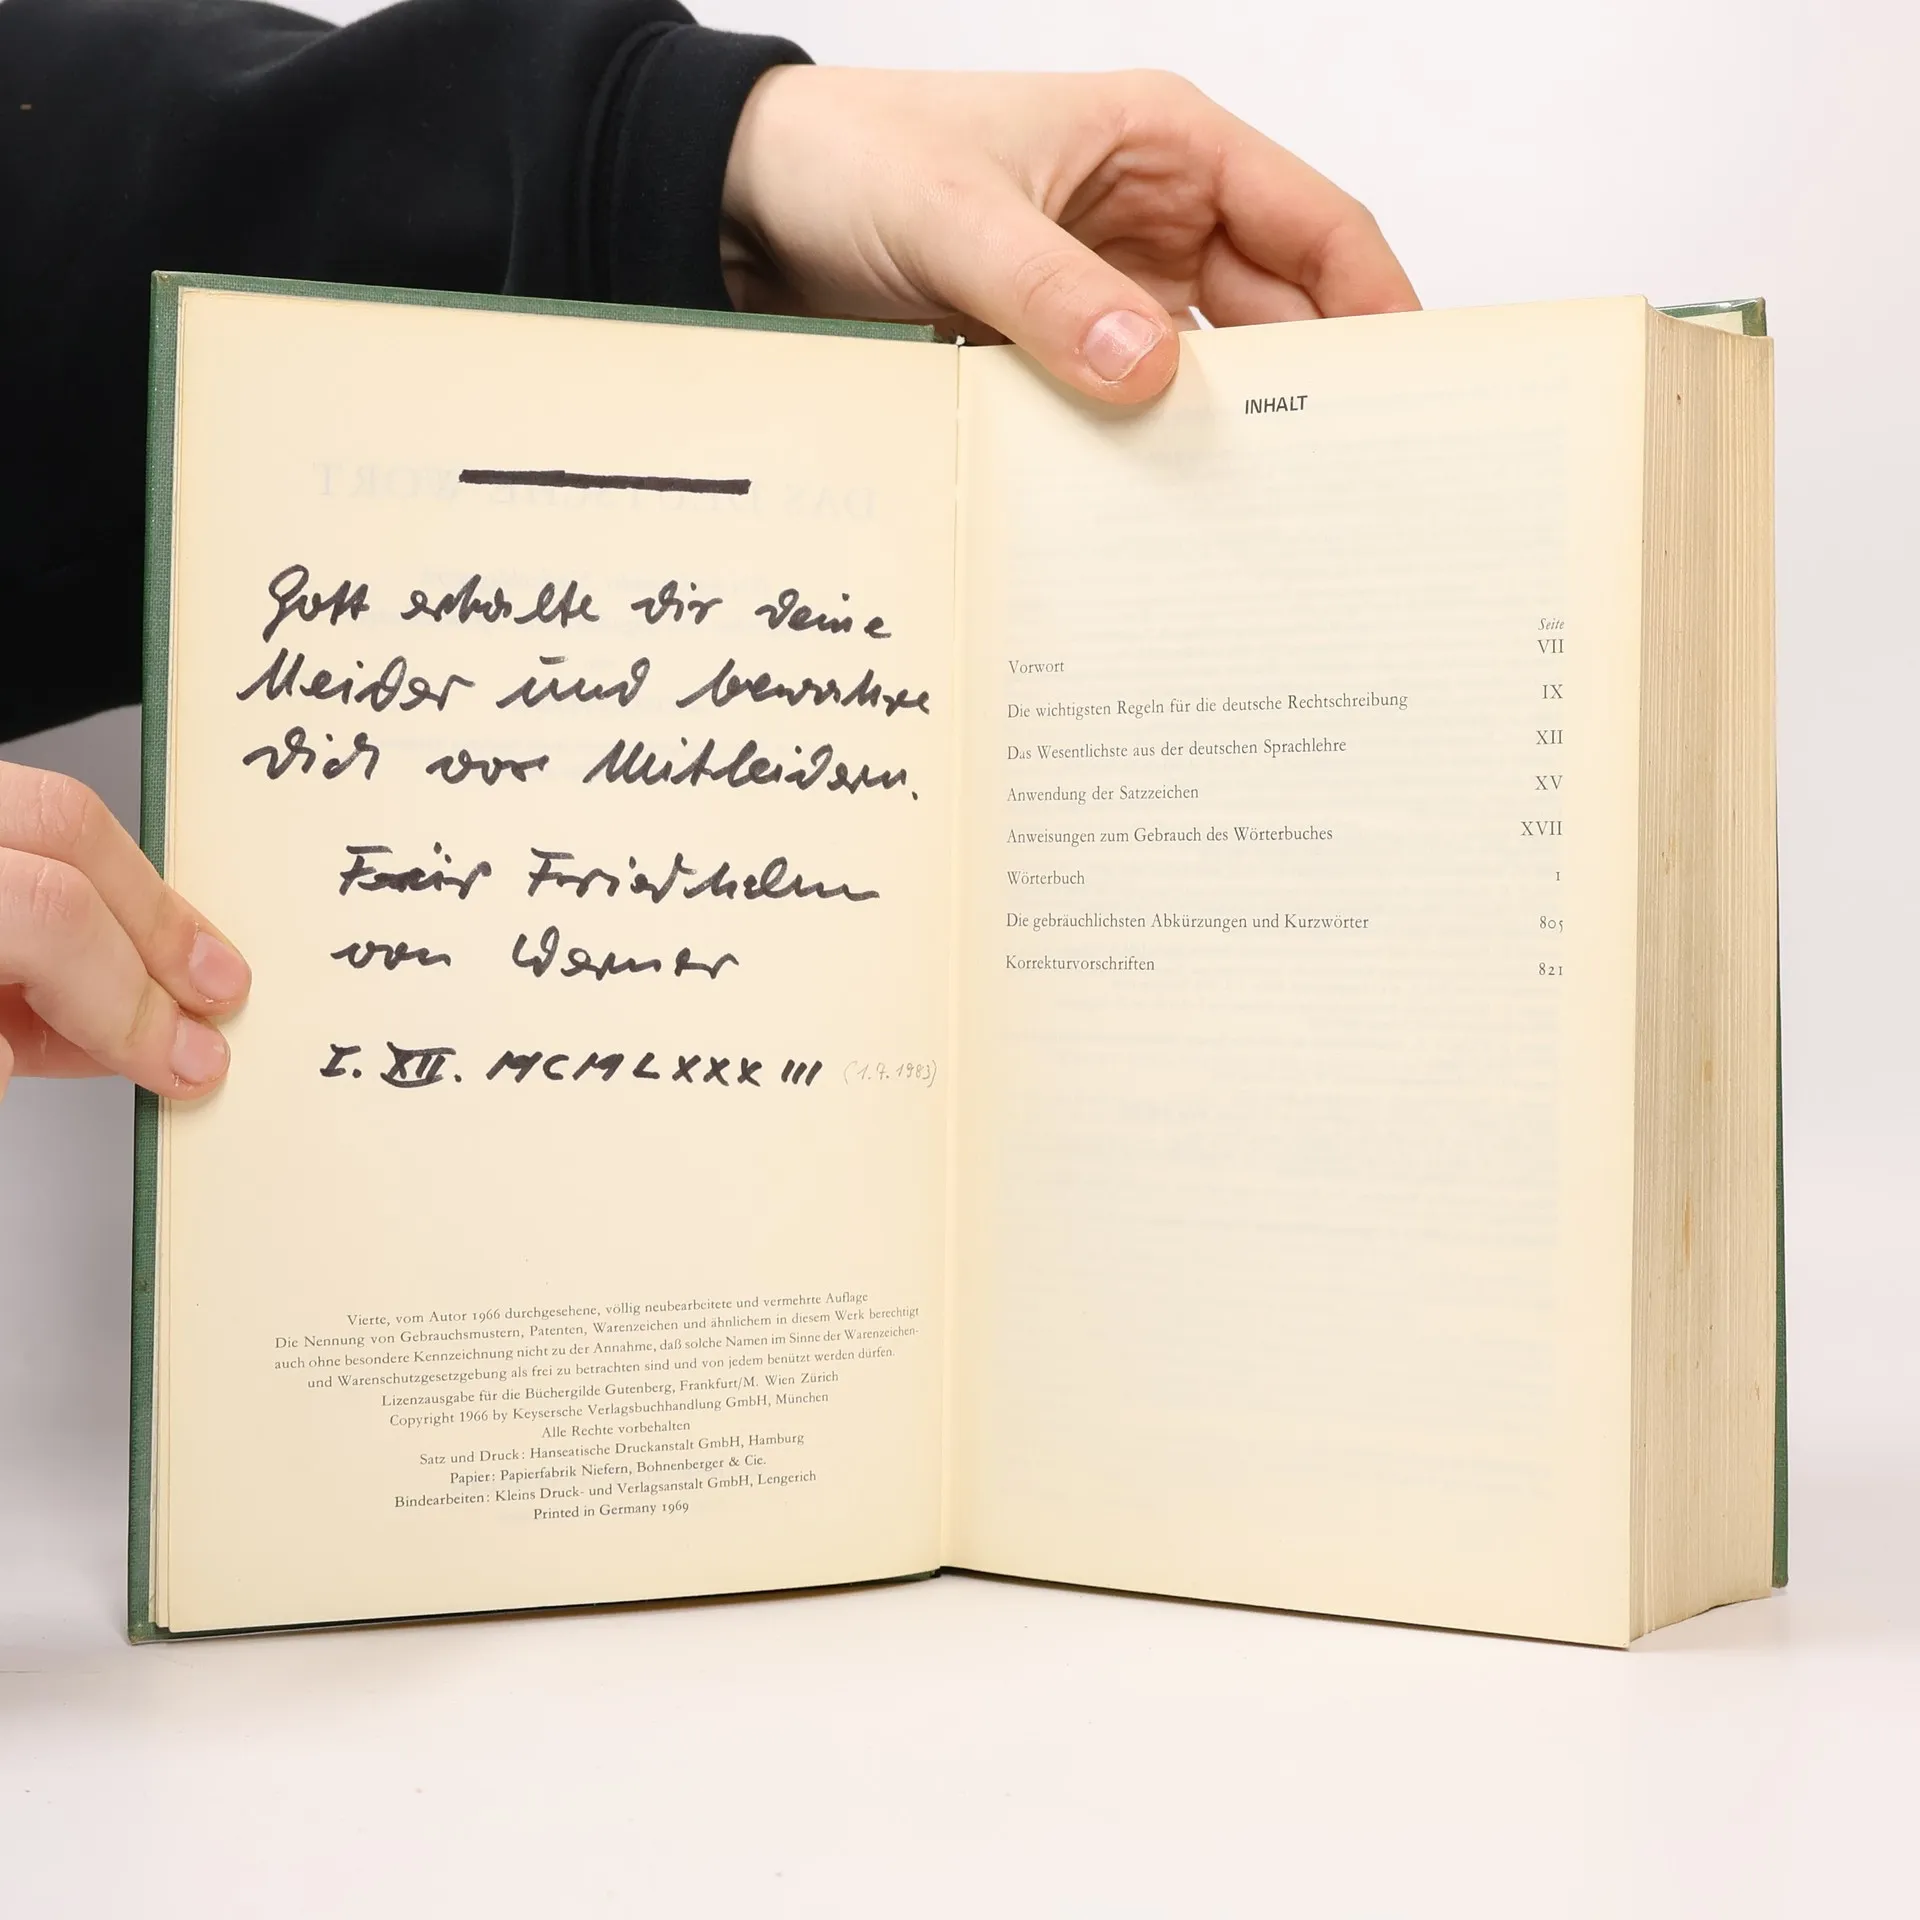 Gott erhalte dir deine
Neider und bewahre
dich vor Mitleidern.
Für Friedhelm
von Werner
I. XII. MCMLXXXIII (1.7.1983)
Vierte, vom Autor 1966 durchgesehene, völlig neubearbeitete und vermehrte Auflage
Die Nennung von Gebrauchsmustern, Patenten, Warenzeichen und ähnlichem in diesem Werk berechtigt
auch ohne besondere Kennzeichnung nicht zu der Annahme, daß solche Namen im Sinne der Warenzeichen-
und Warenschutzgesetzgebung als frei zu betrachten sind und von jedem benützt werden dürfen.
Lizenzausgabe für die Büchergilde Gutenberg, Frankfurt/M. Wien Zürich
Copyright 1966 by Keysersche Verlagsbuchhandlung GmbH, München
Alle Rechte vorbehalten
Satz und Druck: Hanseatische Druckanstalt GmbH, Hamburg
Papier: Papierfabrik Niefern, Bohnenberger & Cie.
Bindearbeiten: Kleins Druck- und Verlagsanstalt GmbH, Lengerich
Printed in Germany 1969
INHALT
Seite
Vorwort VII
Die wichtigsten Regeln für die deutsche Rechtschreibung IX
Das Wesentlichste aus der deutschen Sprachlehre XII
Anwendung der Satzzeichen XV
Anweisungen zum Gebrauch des Wörterbuches XVII
Wörterbuch 1
Die gebräuchlichsten Abkürzungen und Kurzwörter 805
Korrekturvorschriften 821